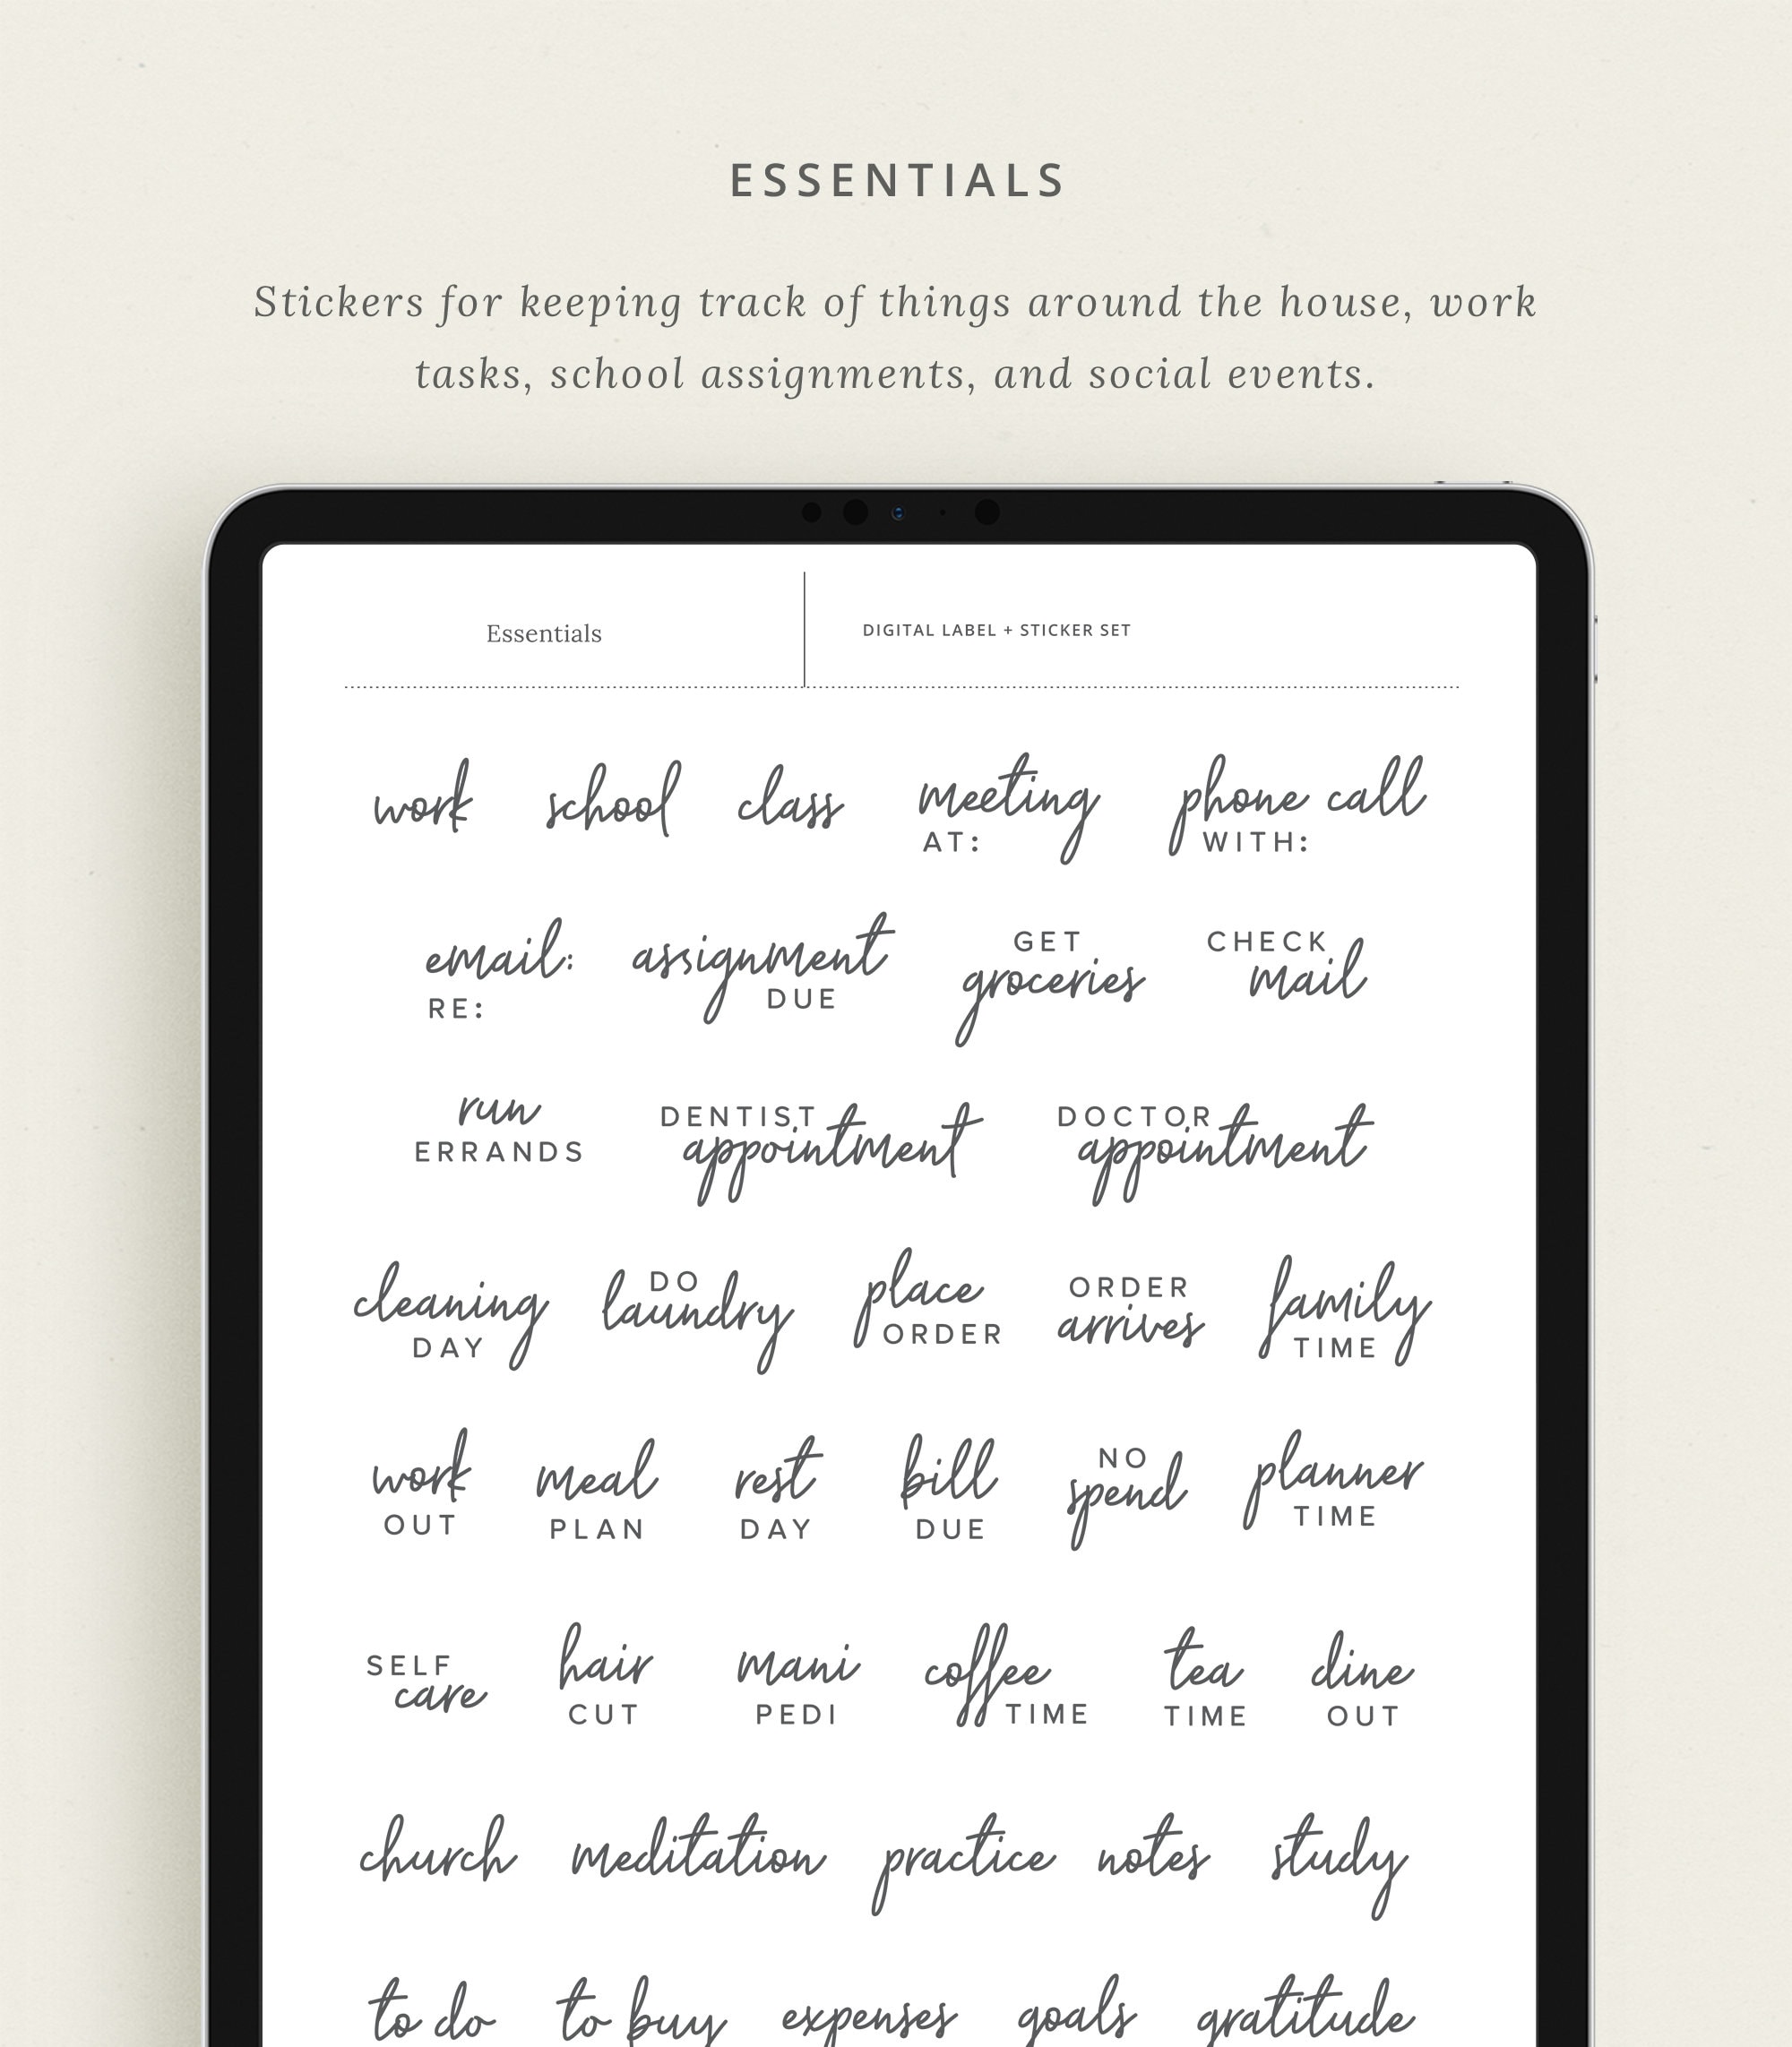 ESSENTIALS
Stickers for keeping track of things around the house, work
tasks, school assignments, and social events.
Essentials
DIGITAL LABEL + STICKER SET
work
school
class
meeting
AT:
phone call
WITH:
email:
RE:
assignment
DUE
GET
groceries
CHECK
mail
run
ERRANDS
DENTIST
appointment
DOCTOR
appointment
cleaning
DAY
DO
laundry
place
ORDER
ORDER
arrives
family
TIME
work
OUT
meal
PLAN
rest
DAY
bill
DUE
NO
spend
planner
TIME
SELF
care
hair
CUT
mani
PEDI
coffee
TIME
tea
TIME
dine
OUT
church
meditation
practice
notes
study
to do
to buy
expenses
goals
gratitude